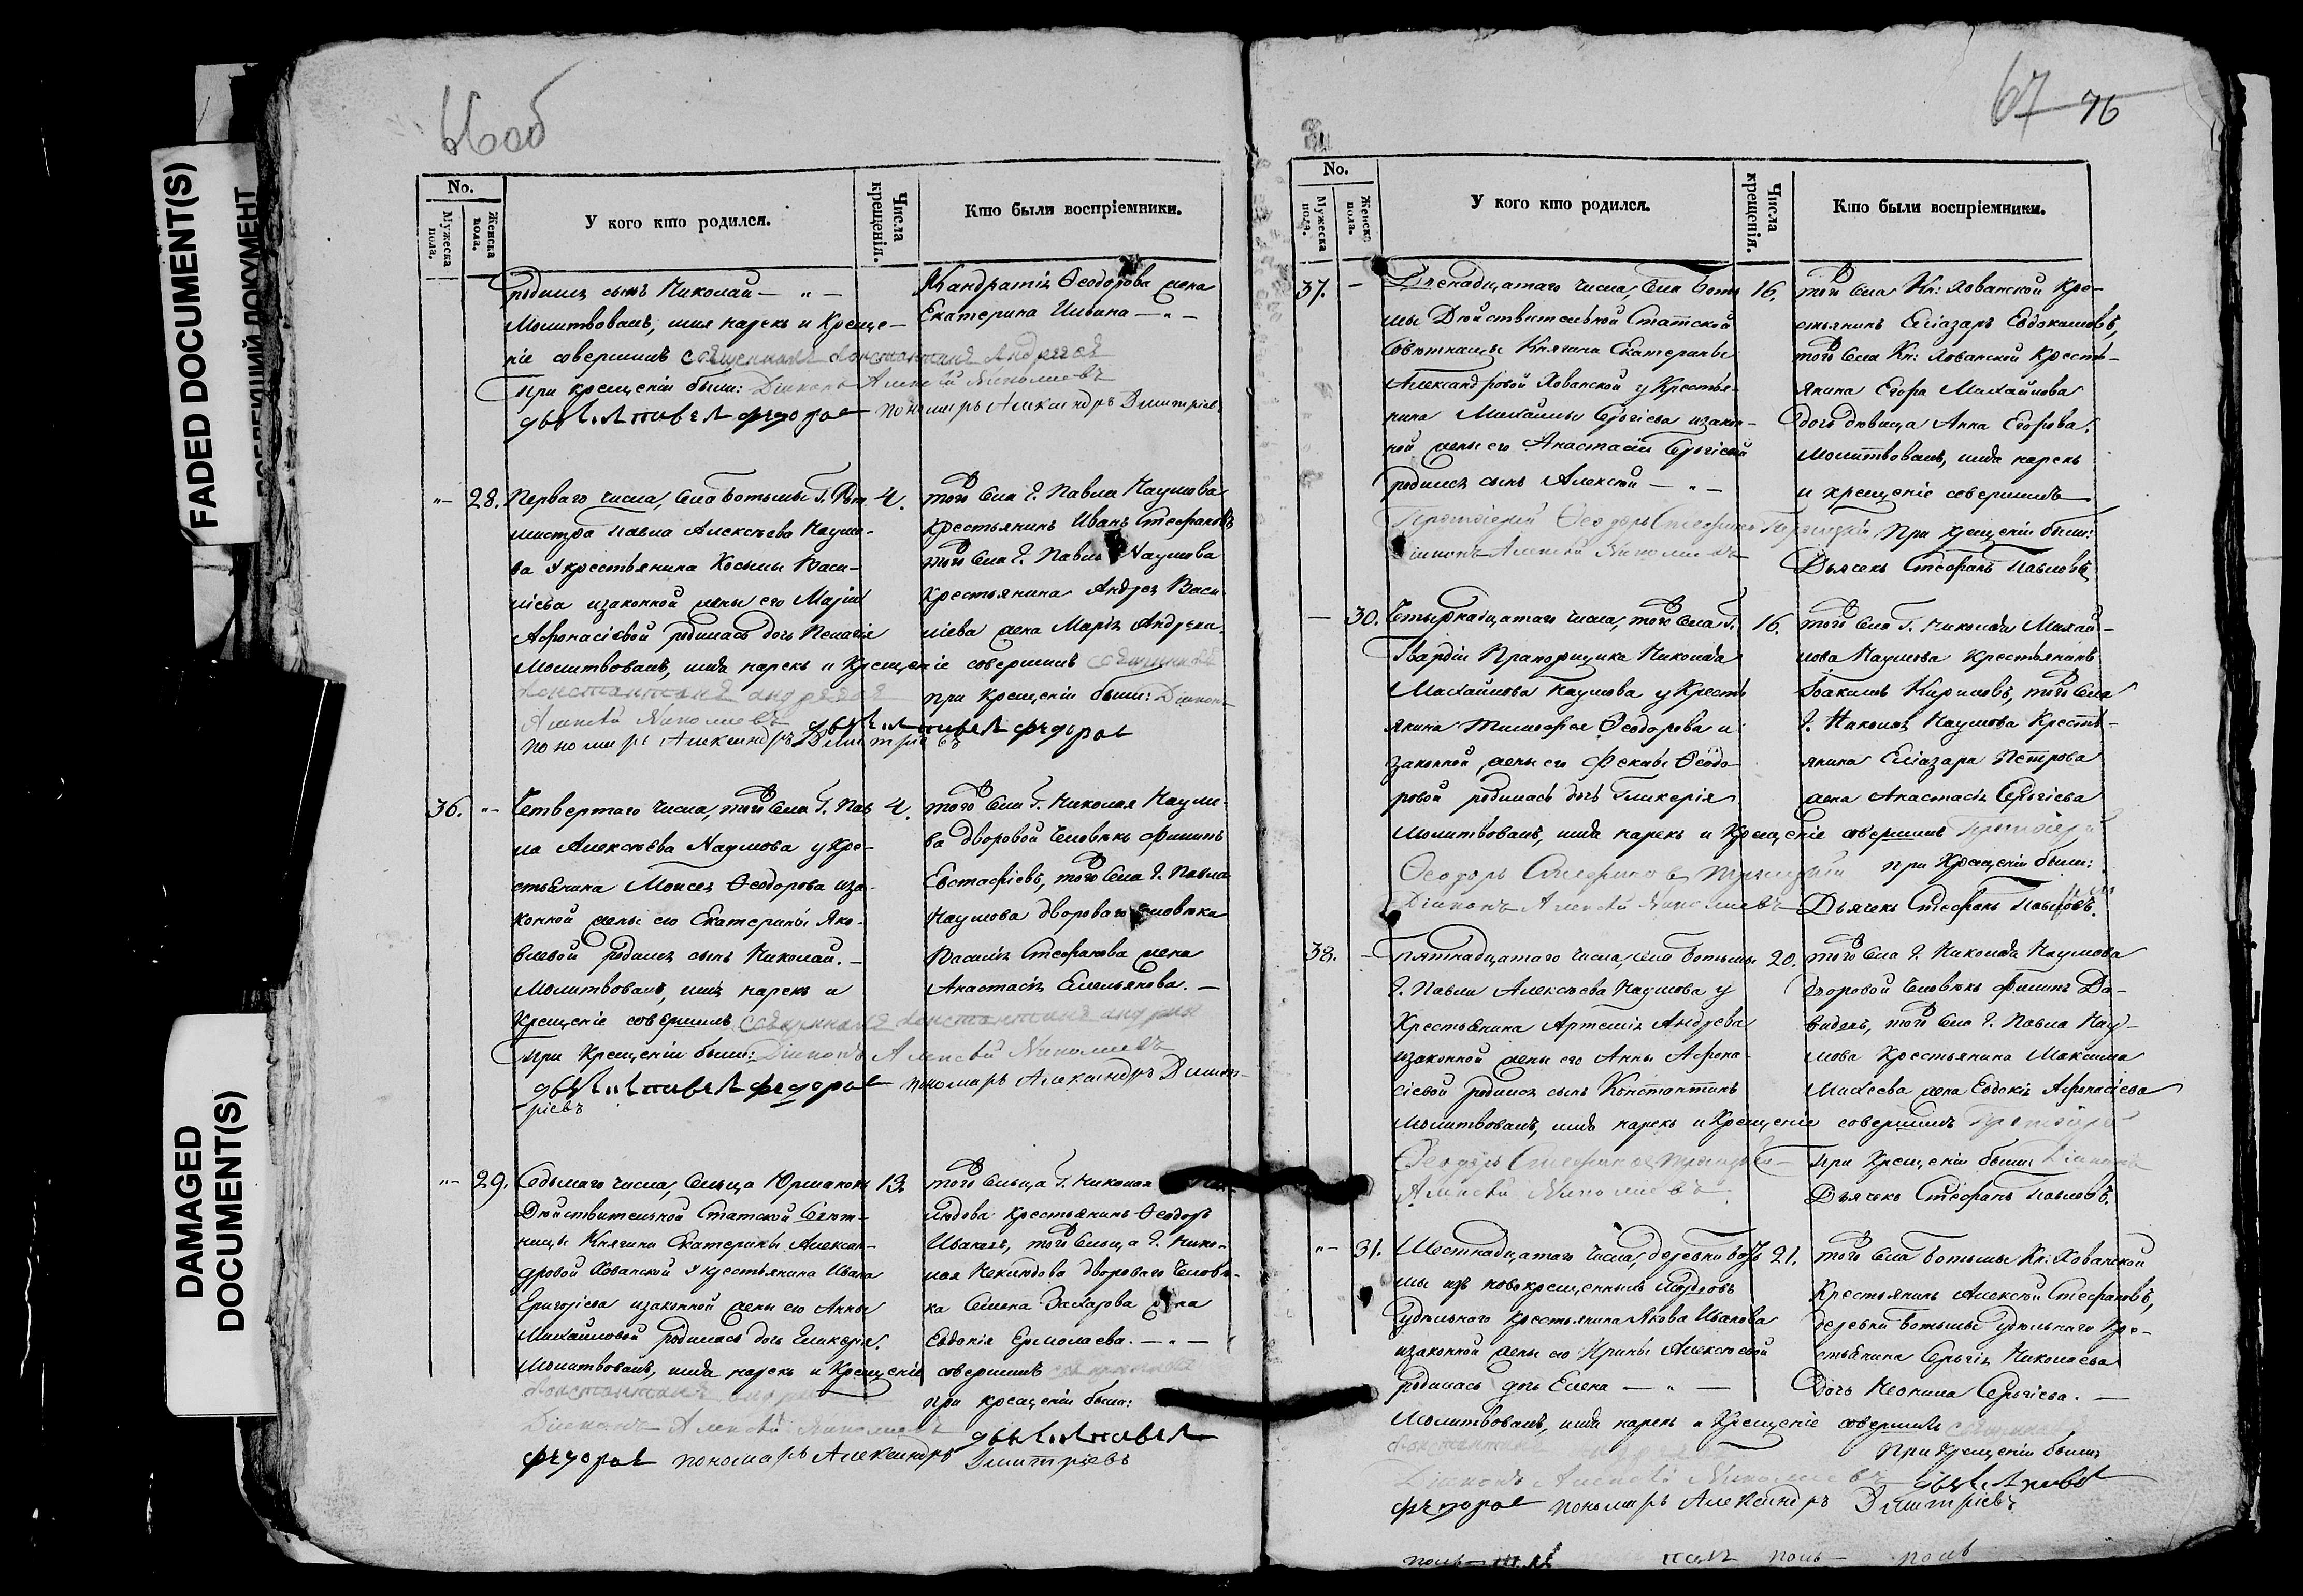 FADED DOCUMENT(S)
DAMAGED
DOCUMENT(S)
66об
No.
Мужеска пола.
Женска пола.
У кого кто родился.
Числа крещенія.
Кто были воспріемники.
родился сынъ Николай — „ —
Молитвовалъ, имя нарекъ и Креще-
ніе совершилъ священникъ Константинъ Андреевъ
При крещеніи были: Діаконъ Алексѣй Николаевъ
Федоровъ пономарь Александръ Дмитріевъ
Кандратія Ѳеодорова жена
Екатерина Ильина — „ —
„— 28. Перваго числа, села Ботьмы Г. Рот 4.
мистра Павла Алексѣева Наумо-
ва у крестьянина Косьмы Васи-
ліева и законной жены его Маріи
Афонасіевой родилась дочь Пелагія
Молитвовалъ, имя нарекъ и Крещеніе совершилъ священникъ
Константинъ Андреевъ
Алексѣй Николаевъ
пономарь Александръ Дмитріевъ
того села Г. Павла Наумова
крестьянинъ Иванъ Стефановъ
того села Г. Павла Наумова
Крестьянина Андрея Васи
ліева жена Марія Андреева.
при Крещеніи были: Діаконъ
36. „— Четвертаго числа, того села Г. Пав 4.
ла Алексѣева Наумова у Кре-
стьянина Моисея Ѳеодорова и за-
конной жены его Екатерины Яко-
влевой родился сынъ Николай. —
Молитвовалъ, имя нарекъ и
Крещеніе совершилъ священникъ Константинъ Андреевъ
При Крещеніи были: Діаконъ Алексѣй Николаевъ
Федоровъ пономарь Александръ Димит-
ріевъ
того села Г. Николая Наумо-
ва дворовой человѣкъ Филипъ
Евстафіевъ, того села Г. Павла
Наумова двороваго человѣка
Василія Стефанова жена
Анастасія Емельянова. —
„— 29. Седьмаго числа, сельца 13.
Дѣйствительной Статской Совѣт-
ницы Княгини Екатерины Алексан-
дровой Хованской у крестьянина Ивана
Григорієва и законной жены его Анны
Михайловой родилась дочь Гликерія.
Молитвовалъ, имя нарекъ и Крещеніе совершилъ священникъ
Константинъ Андреевъ
Діаконъ Алексѣй Николаевъ
Федоровъ пономарь Александръ Дмитріевъ
того сельца Г. Николая
людова крестьянинъ Ѳеодоръ
Ивановъ, того сельца Г. Нико-
лая Неклюдова двороваго человѣ-
ка Семена Захарова жена
Евдокія Ермолаева. — „ —
при крещеніи были:
67 76
No.
Мужеска пола.
Женска пола.
У кого кто родился.
Числа крещенія.
Кто были воспріемники.
37. — Двенадцатаго числа, села Боть 16.
мы Дѣйствительной Статской
Совѣтницы Княгини Екатерины
Александровой Хованской у Крестья-
нина Михаилы Сергіева и закон-
ной жены его Анастасіи Сергіевой
родился сынъ Алексѣй — „ —
Протоіерей Ѳеодоръ Стефановъ При крещеніи были:
Діаконъ Алексѣй Николаевъ
того села Кн: Хованской Кре-
стьянинъ Еліазаръ Евдокимовъ,
того села Кн: Хованской Кресть-
янина Егора Михайлова
дочь дѣвица Анна Егорова.
Молитвовалъ, имя нарекъ
и крещеніе совершилъ
Дьячекъ Стефанъ Павловъ
— 30. Четырнадцатаго числа, того села Г. 16.
Гвардіи Прапорщика Николая
Михайлова Наумова у Кресть
янина Тимофея Ѳеодорова и
законной жены его Феклы Ѳеодо-
ровой родилась дочь Гликерія
Молитвовалъ, имя нарекъ и Крещеніе совершилъ Протоіерей
Ѳеодоръ Стефановъ при Крещеніи были:
Діаконъ Алексѣй Николаевъ Дьячекъ Стефанъ Павловъ.
того села Г. Николая Михай-
лова Наумова крестьянинъ
Іоакимъ Кириловъ, того села
Г. Николая Наумова Кресть-
янина Еліазара Петрова
жена Анастасія Сергіева
38. — Пятнадцатаго числа, села Ботьмы 20.
Г. Павла Алексѣева Наумова у
Крестьянина Артемія Андреева
и законной жены его Анны Афона-
сіевой родился сынъ Константинъ
Молитвовалъ, имя нарекъ и Крещеніе совершилъ Протоіерей
Ѳеодоръ Стефановъ При Крещеніи были Діаконъ
Алексѣй Николаевъ Дьячекъ Стефанъ Павловъ.
того села Г. Николая Наумова
Дворовой человѣкъ Филипъ Да-
видовъ, того села Г. Павла Нау-
мова Крестьянина Максима
Михеева жена Евдокія Афонасіева
„— 31. Шестнадцатаго числа, деревни Боть 21.
мы изъ новокрещенныхъ
удѣльнаго крестьянина Якова Иванова
и законной жены его Ирины Алексѣевой
родилась дочь Елена — „ —
Молитвовалъ, имя нарекъ и Крещеніе совершилъ священникъ
При Крещеніи были
Діаконъ Алексѣй Николаевъ
Федоровъ пономарь Александръ Дмитріевъ
того села Ботьмы Кн: Хованской
Крестьянинъ Алексѣй Стефановъ,
деревни Ботьмы удѣльнаго Кре-
стьянина Сергія Николаева
Дочь Неонила Сергіева. —